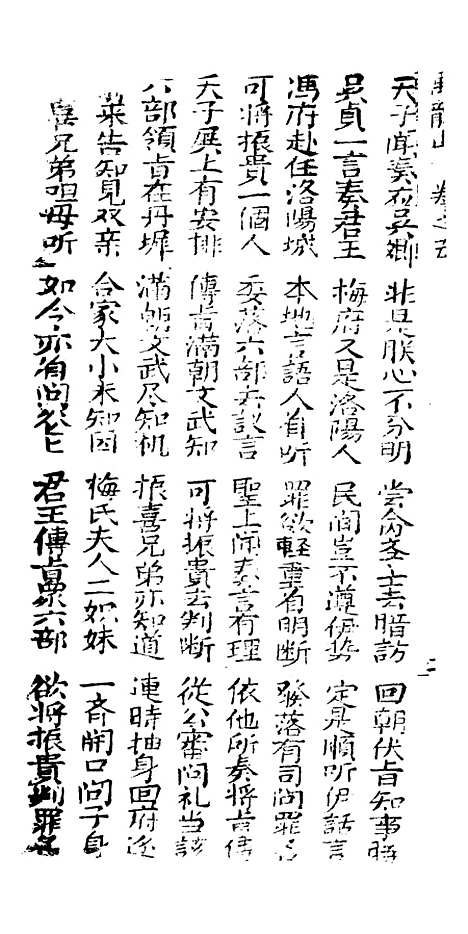 龍山 卷之五
天子聞奏在吳卿 非是朕心不分明 差去暗訪 回朝伏旨知事時
吳貞一言奏君王 梅府又是洛陽人 民間豈不遵伊势 定是順听伊話言
馮府赴任洛陽城 本地言語人肯听 罪欲軽重有明断 發落有司問罪名
可將振貴一個人 委落六部去議言 聖上闻奏言有理 依他所奏將旨傳
天子展上有安排 傳旨滿朝文武知 可將振贵去判断 從公審问礼当該
六部領旨在丹墀 滿朝文武尽知机 振喜兄弟亦知道 連時抽身回府逩
來告知見双亲 合家大小未知因 梅氏夫人二姐妹 一斉開口问子身
兄弟咀母听 如今亦有问 君王傳旨眾六部 欲將振貴判罪名
二